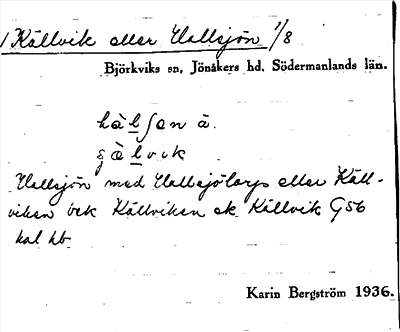 1 Källvik eller Hallsjön 1/8
Björkviks sn, Jönåkers hd, Södermanlands län.
hàlʃɔn ä.
ɕàlvɪk
Hallsjön med Hallsjötorp eller Käll-
viken ek Källvik G56
kal hb
Karin Bergström 1936.